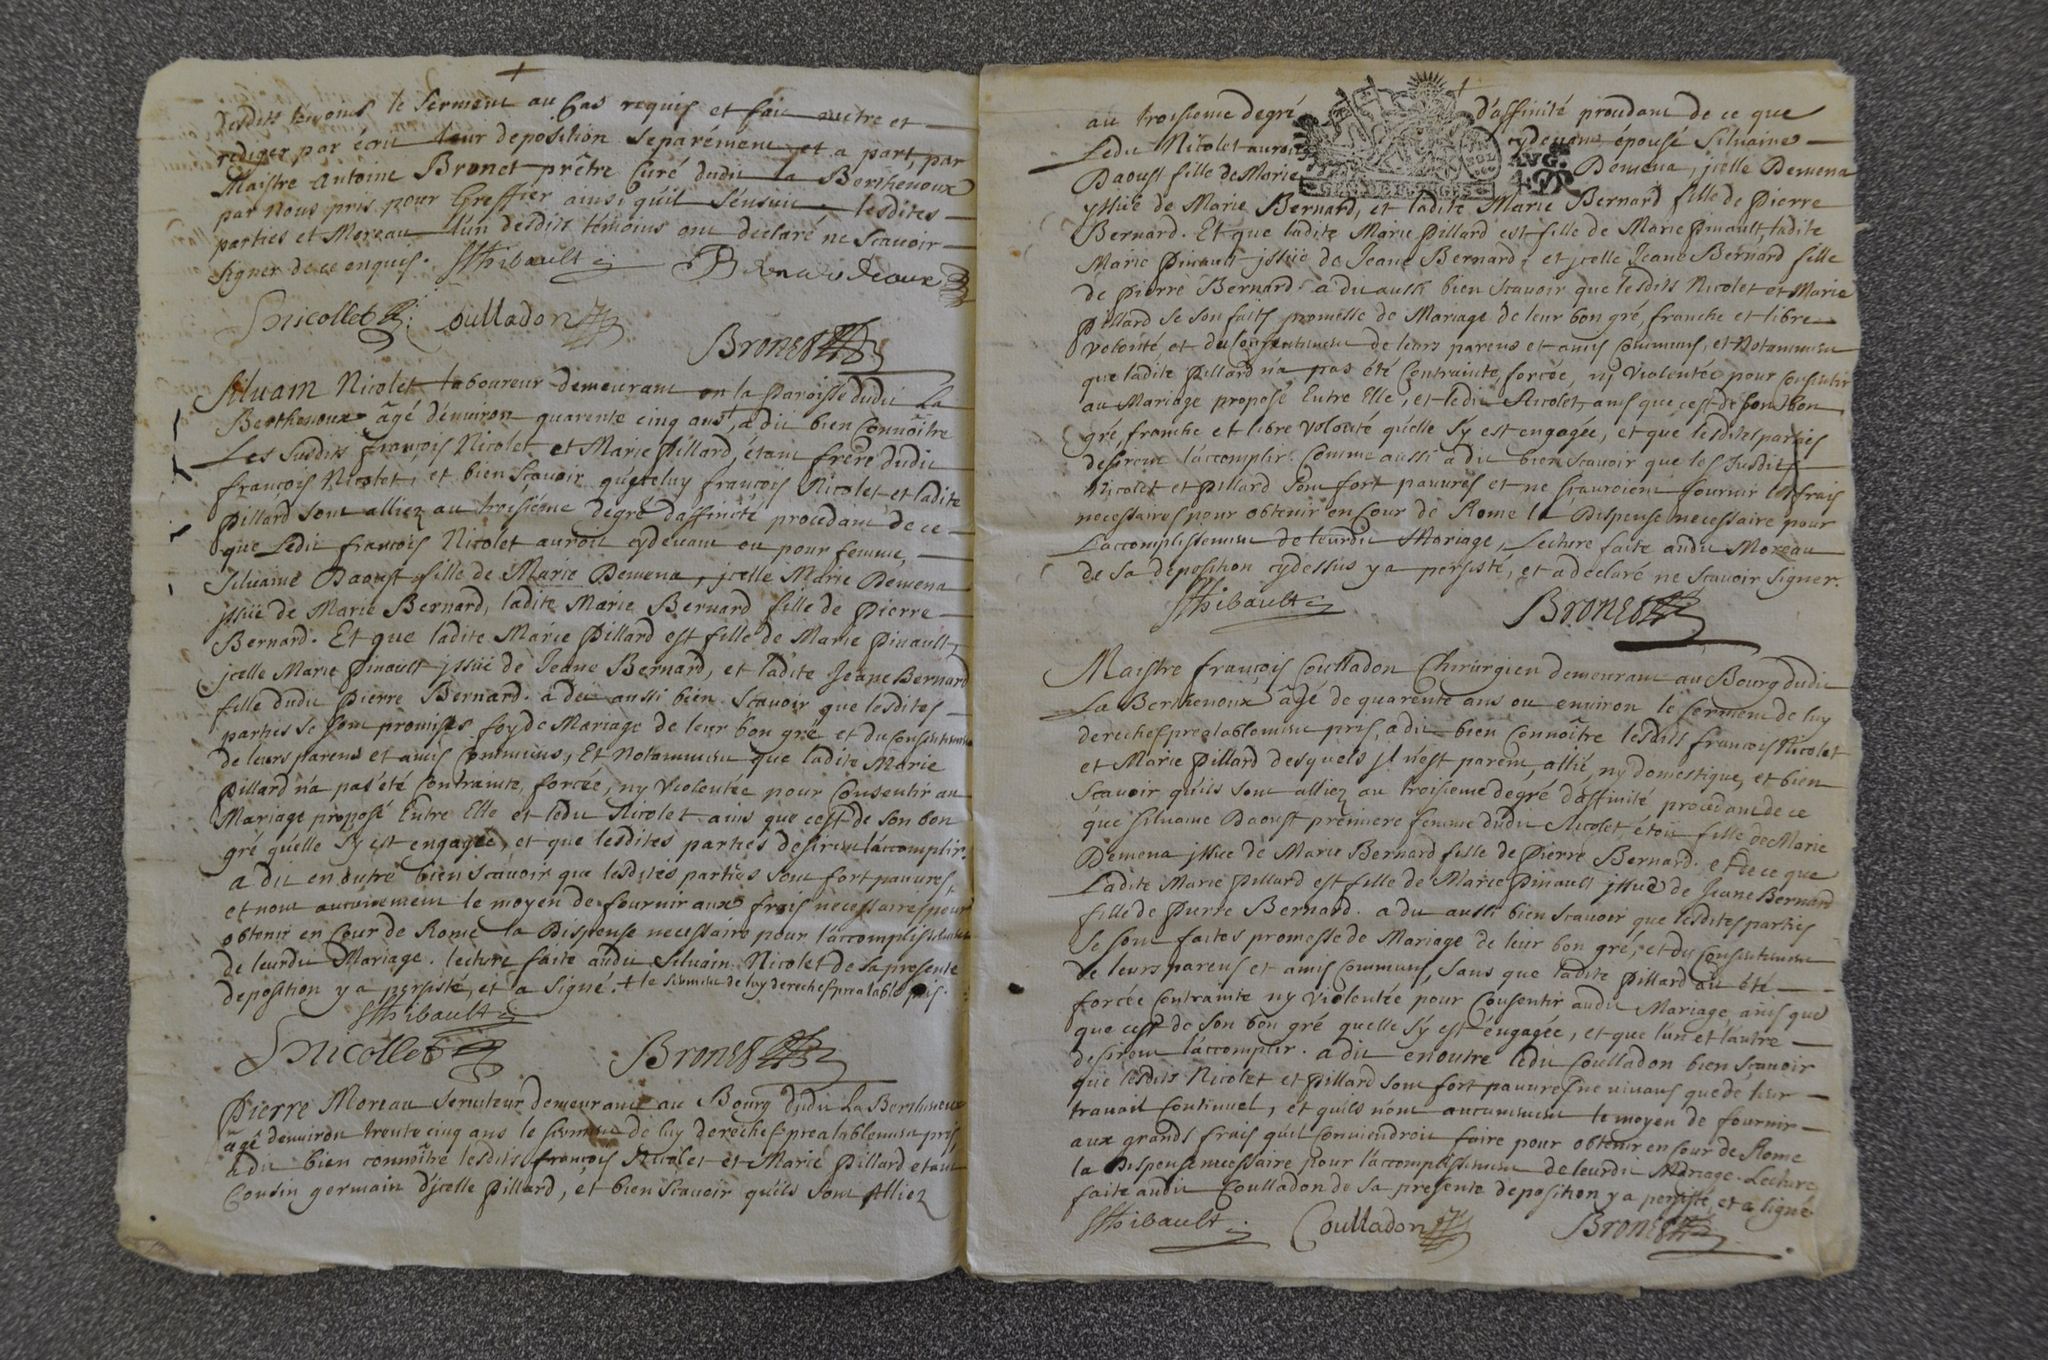 desdits témoins le serment au Cas requis et fait mettre et
rediger par écrit leur deposition separément et a part, par
Maistre Antoine Bronet prêtre Curé dudit La Berthenoux
par Nous pris pour Greffier ainsi qu'il s'ensuit. lesdites
parties et Moreau l'un desdits témoins ont declaré ne scavoir
signer de ce enquis. SThibault
Snicollet Coulladon
Bronet
Silvain Nicolet laboureur demeurant en la paroisse dudit La
Berthenoux âgé d'environ quarente cinq ans,+ a dit bien Connoître
Les susdits françois Nicolet et Marie Pillard, étant frere dudit
françois Nicolet, et bien scavoir qu'iceluy françois Nicolet et ladite
Pillard sont alliez au troisième degré d'affinité procedant de ce
que Ledit françois Nicolet auroit cydevant eu pour femme,
Silvaine Daoust fille de Marie Demena, jcelle Marie Demena
jssüe de Marie Bernard, ladite Marie Bernard fille de Pierre
Bernard. Et que ladite Marie Pillard est fille de Marie Pinault,
jcelle Marie Pinault jssüe de Jeane Bernard, et ladite Jeane Bernard
fille dudit Pierre Bernard. a dit aussi bien scavoir que lesdites
parties se sont promises foy de Mariage de leur bon gré et du consentement
de leurs parens et amis Communs, Et Notamment que ladite Marie
Pillard n'a pas été Contrainte, forcée, ny Violentée pour Consentir au
Mariage proposé Entre Elle et ledit Nicolet ains que c'est de son bon
gré qu'elle s'y est engagée, et que lesdites parties desirent l'accomplir.
a dit en outre bien scavoir que lesdites parties sont fort pauvres,
et n'ont aucunement le moyen de fournir aux frais necessaires pour
obtenir en Cour de Rome la Dispense necessaire pour l'accomplissement
de leurdit Mariage. lecture faite audit Silvain Nicolet de sa presente
deposition y a persisté, et a signé. + le serment de luy derechef prealablement pris.
SThibault
Snicollet Bronet
Pierre Moreau serviteur demeurant au Bourg dudit La Berthenoux
âgé d'environ trente cinq ans le serment de luy derechef prealablement pris,
a dit bien connoître lesdits françois Nicolet et Marie Pillard etant
Cousin germain d'jcelle Pillard, et bien scavoir qu'ils sont Alliez
au troisieme degré d'affinité procedant de ce que
Ledit Nicolet auroit cydevant épousé Silvaine
Daoust fille de Marie Demena, jcelle Demena
yssüe de Marie Bernard, et ladite Marie Bernard fille de Pierre
Bernard. Et que ladite Marie Pillard est fille de Marie Pinault, ladite
Marie Pinault jssüe de Jeane Bernard, et jcelle Jeane Bernard fille
de Pierre Bernard. a dit aussi bien scavoir que lesdits Nicolet et Marie
Pillard se sont faits promesse de Mariage de leur bon gré, franche et libre
volonté, et du Consentement de leurs parens et amis Communs, et Notamment
que ladite Pillard n'a pas été Contrainte, forcée, ny Violentée pour consentir
au Mariage proposé Entre Elle, et ledit Nicolet, ains que c'est de son bon
gré, franche et libre volonté qu'elle s'y est engagée, et que lesdites parties
desirent l'accomplir. Comme aussi a dit bien scavoir que les susdits
Nicolet et Pillard sont fort pauvres et ne scauroient fournir les frais
necessaires pour obtenir en Cour de Rome la Dispense necessaire pour
L'accomplissement de leurdit Mariage, Lecture faite audit Moreau
de sa deposition cydessus y a persisté, et a declaré ne scavoir signer.
SThibault Bronet
Maistre françois Coulladon Chirurgien demeurant au Bourg dudit
La Berthenoux âgé de quarente ans ou environ le serment de luy
derechef prealablement pris, a dit bien Connoître lesdits françois Nicolet
et Marie Pillard desquels jl n'est parent, allié, ny domestique, et bien
scavoir qu'ils sont alliez au troisieme degré d'affinité procedant de ce
que Silvaine Daoust premiere femme dudit Nicolet, étoit fille de Marie
Demena jssüe de Marie Bernard fille de Pierre Bernard. et de ce que
Ladite Marie Pillard est fille de Marie Pinault jssüe de Jeane Bernard
fille de Pierre Bernard. a dit aussi bien scavoir que lesdites parties
se sont faites promesse de Mariage de leur bon gré, et du consentement
de leurs parens et amis Communs, sans que ladite Pillard ait été
forcée contrainte ny violentée pour Consentir audit Mariage, ains que
que c'est de son bon gré quelle s'y est engagée, et que l'un et l'autre
desirent l'accomplir. a dit en outre ledit Coulladon bien scavoir
que lesdits Nicolet et Pillard sont fort pauvres ne vivans que de leur
travail Continuel, et qu'ils n'ont aucunement le moyen de fournir
aux grands frais qu'il Conviendroit faire pour obtenir en Cour de Rome
la Dispense necessaire pour l'accomplissement de leurdit Mariage. Lecture
faite audit Coulladon de sa presente deposition y a persisté, et a signé
SThibault Coulladon Bronet